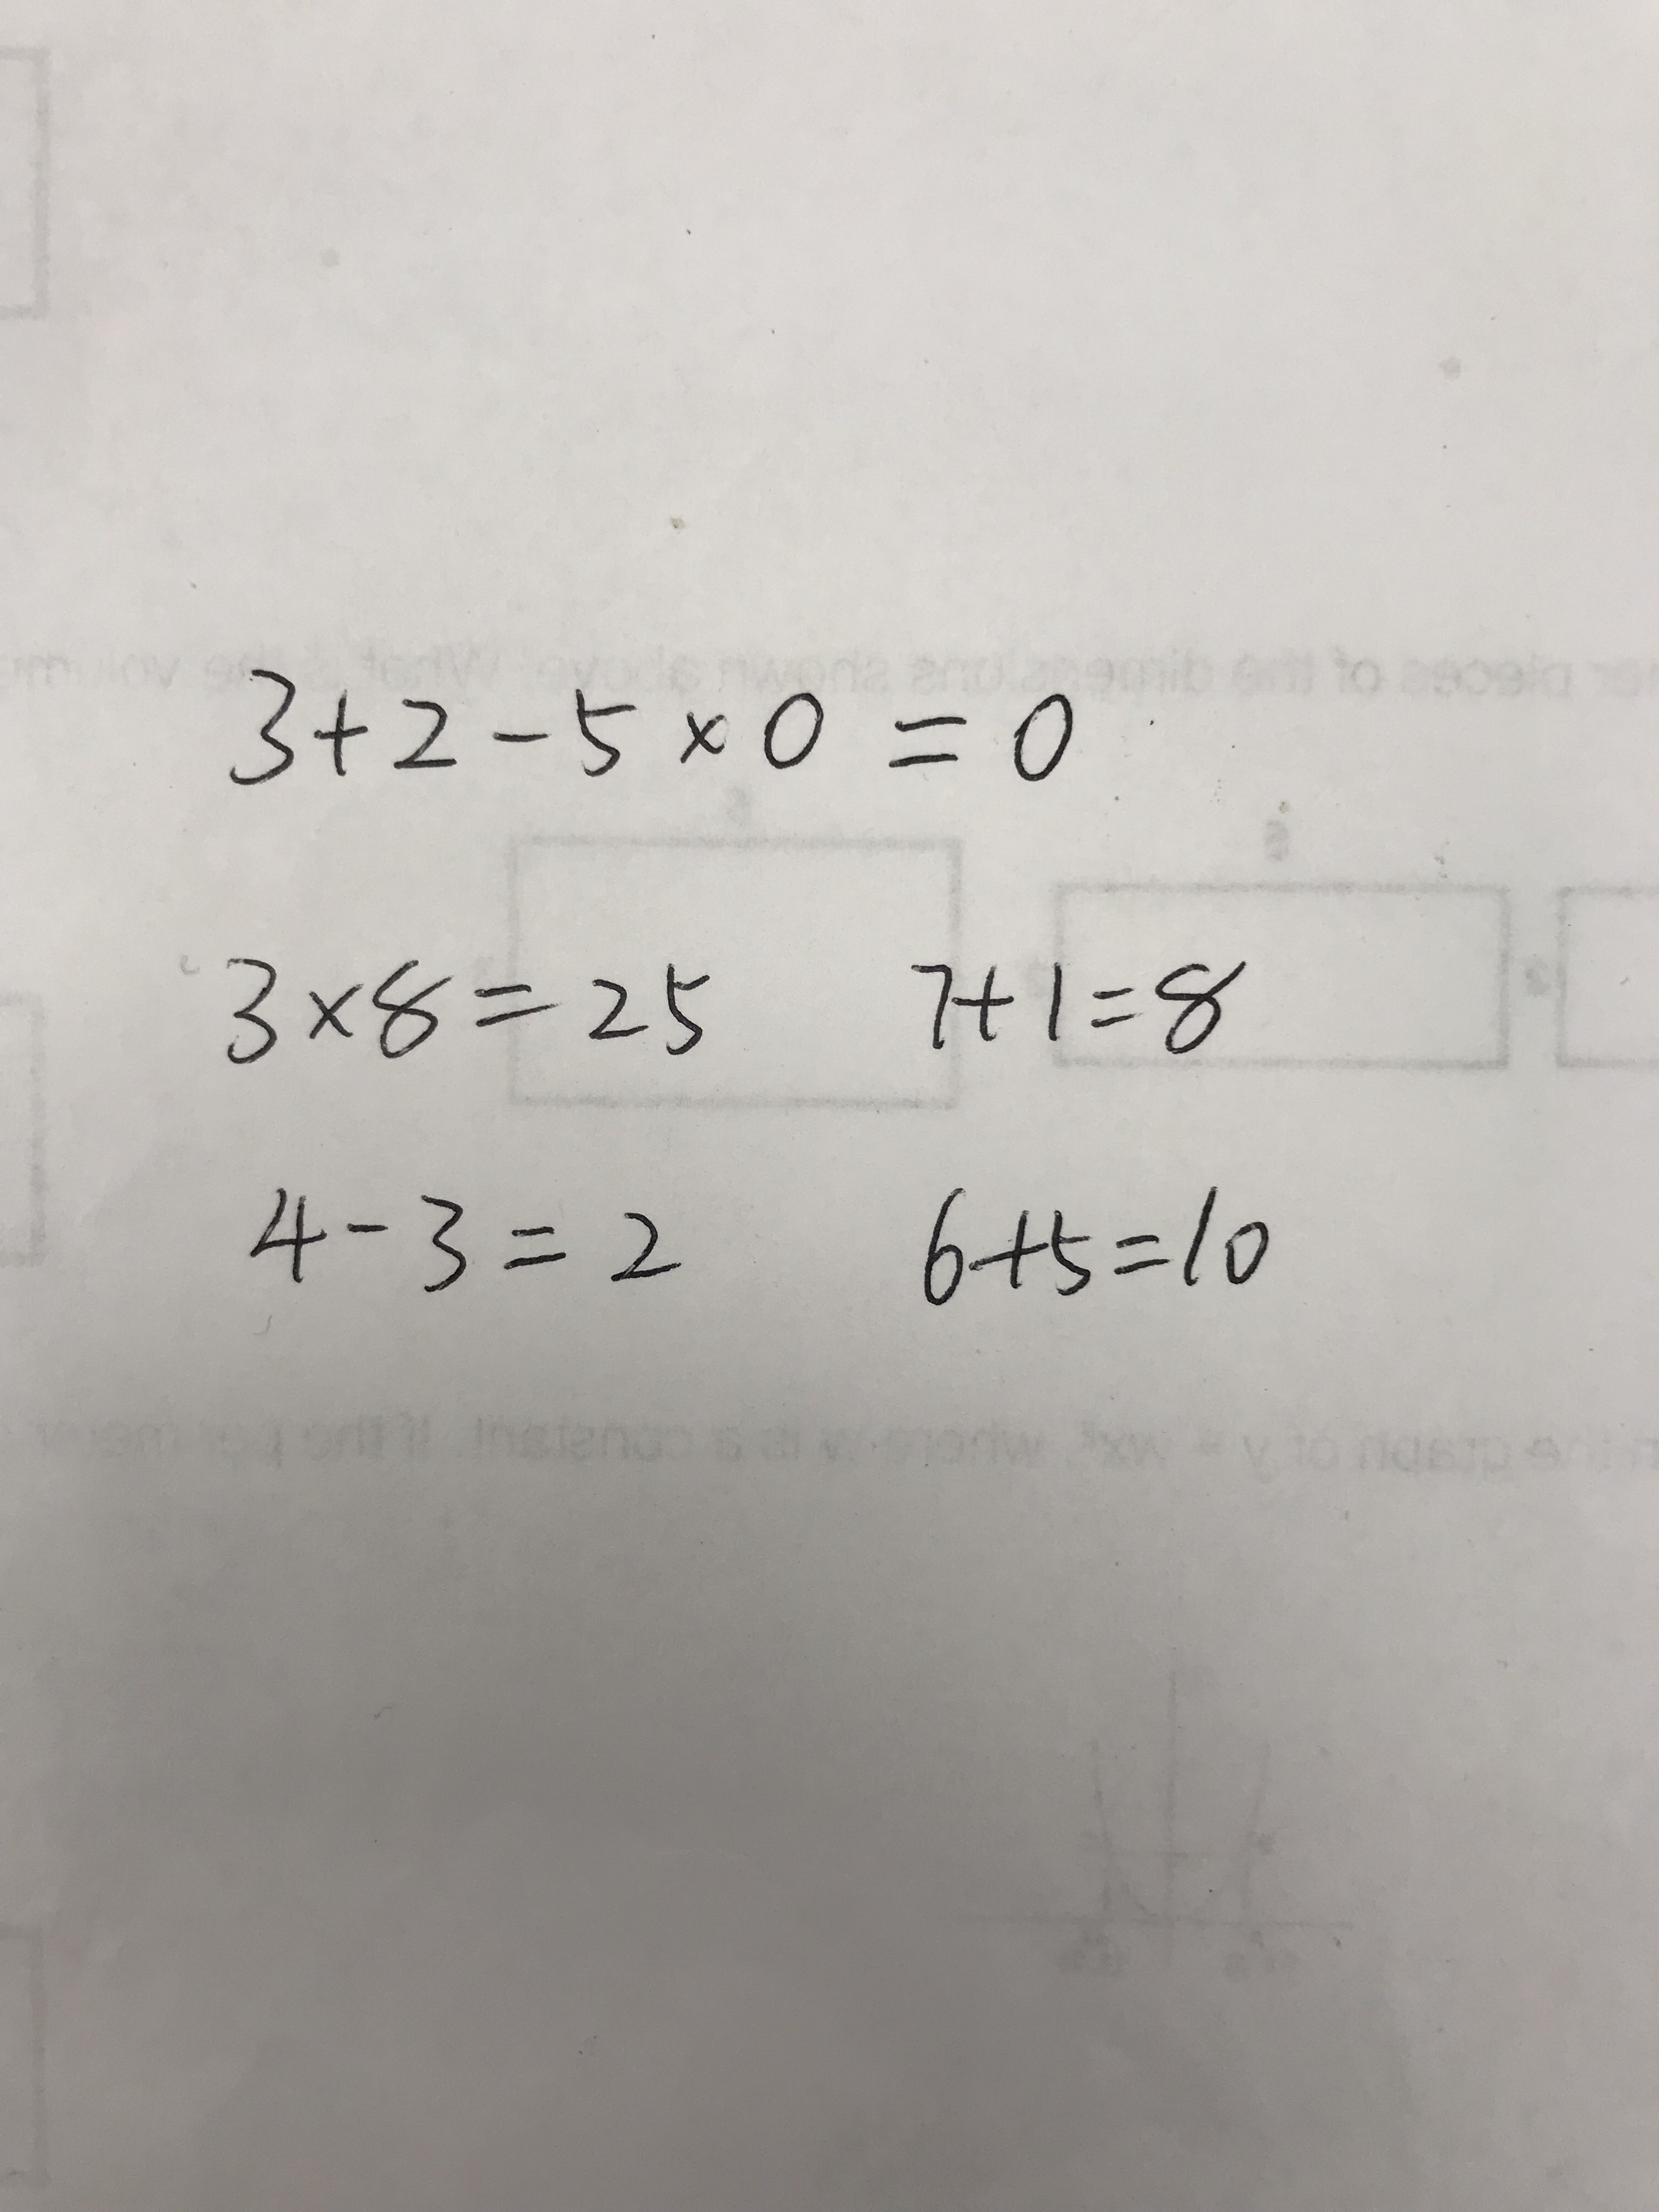 3+2-5×0=0
3×8=25 7+1=8
4-3=2 6+5=10